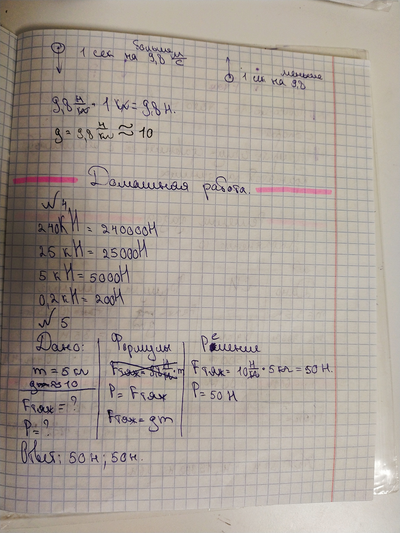 1 сек больше на 9,8 м/с
1 с меньше на 9,8
9,8 Н/кг · 1 кг = 9,8 Н.
g = 9,8 Н/кг ≈ 10
Домашная работа.
№ 4
240кН = 240000Н
25 кН = 25000Н
5 кН = 5000Н
0,2 кН = 200Н
№ 5
Дано: Формулы Решение
m = 5 кг
Fтяж = 10 Н/кг · 5 кг = 50 Н.
P = Fтяж P = 50 Н
Fтяж = ?
Fтяж = gm
P = ?
Ответ: 50 Н; 50 Н.